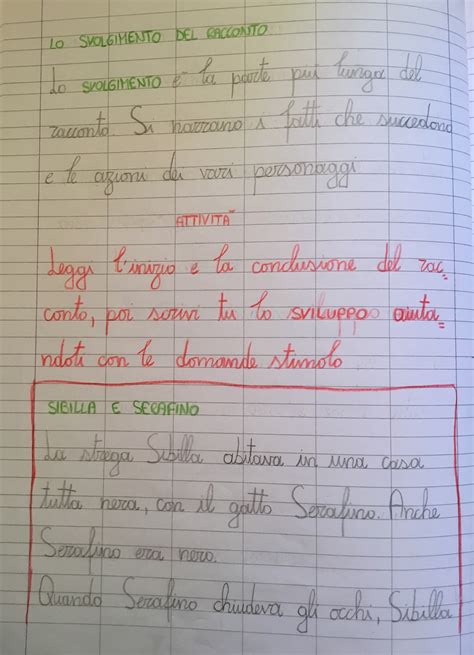 LO SVOLGIMENTO DEL RACCONTO
Lo SVOLGIMENTO è la parte pui lunga del
racconto. Si narrano i fatti che succedono
e le azioni dei vari personaggi
ATTIVITÀ
Leggi l'inizio e la conclusione del rac_
conto, poi scrivi tu lo SVILUPPO aiuta_
ndoti con le domande stimolo
SIBILLA E SERAFINO
La strega Sibilla abitava in una casa
tutta nera, con il gatto Serafino. Anche
Serafino era nero.
Quando Serafino chiudeva gli occhi, Sibilla